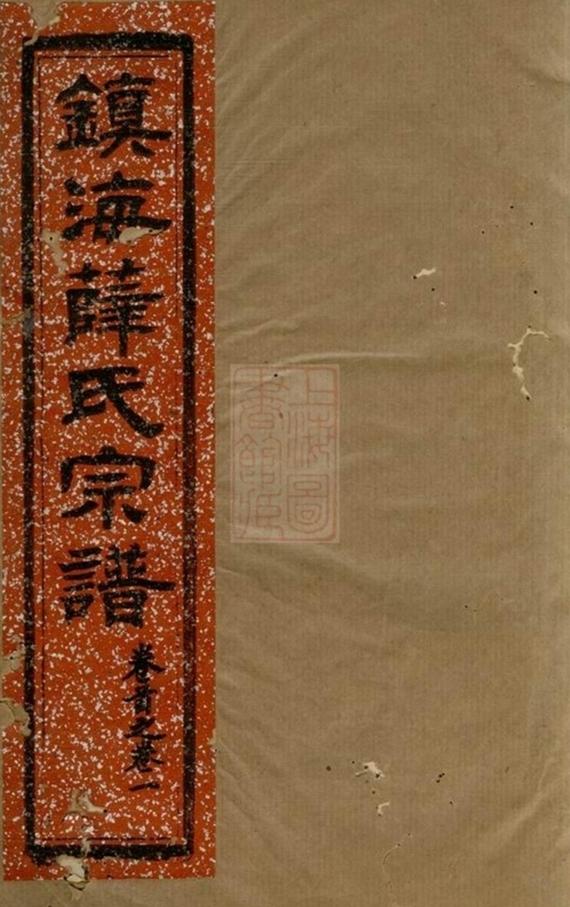 鎮海薛氏宗譜
卷首之卷一
上海圖
書館藏